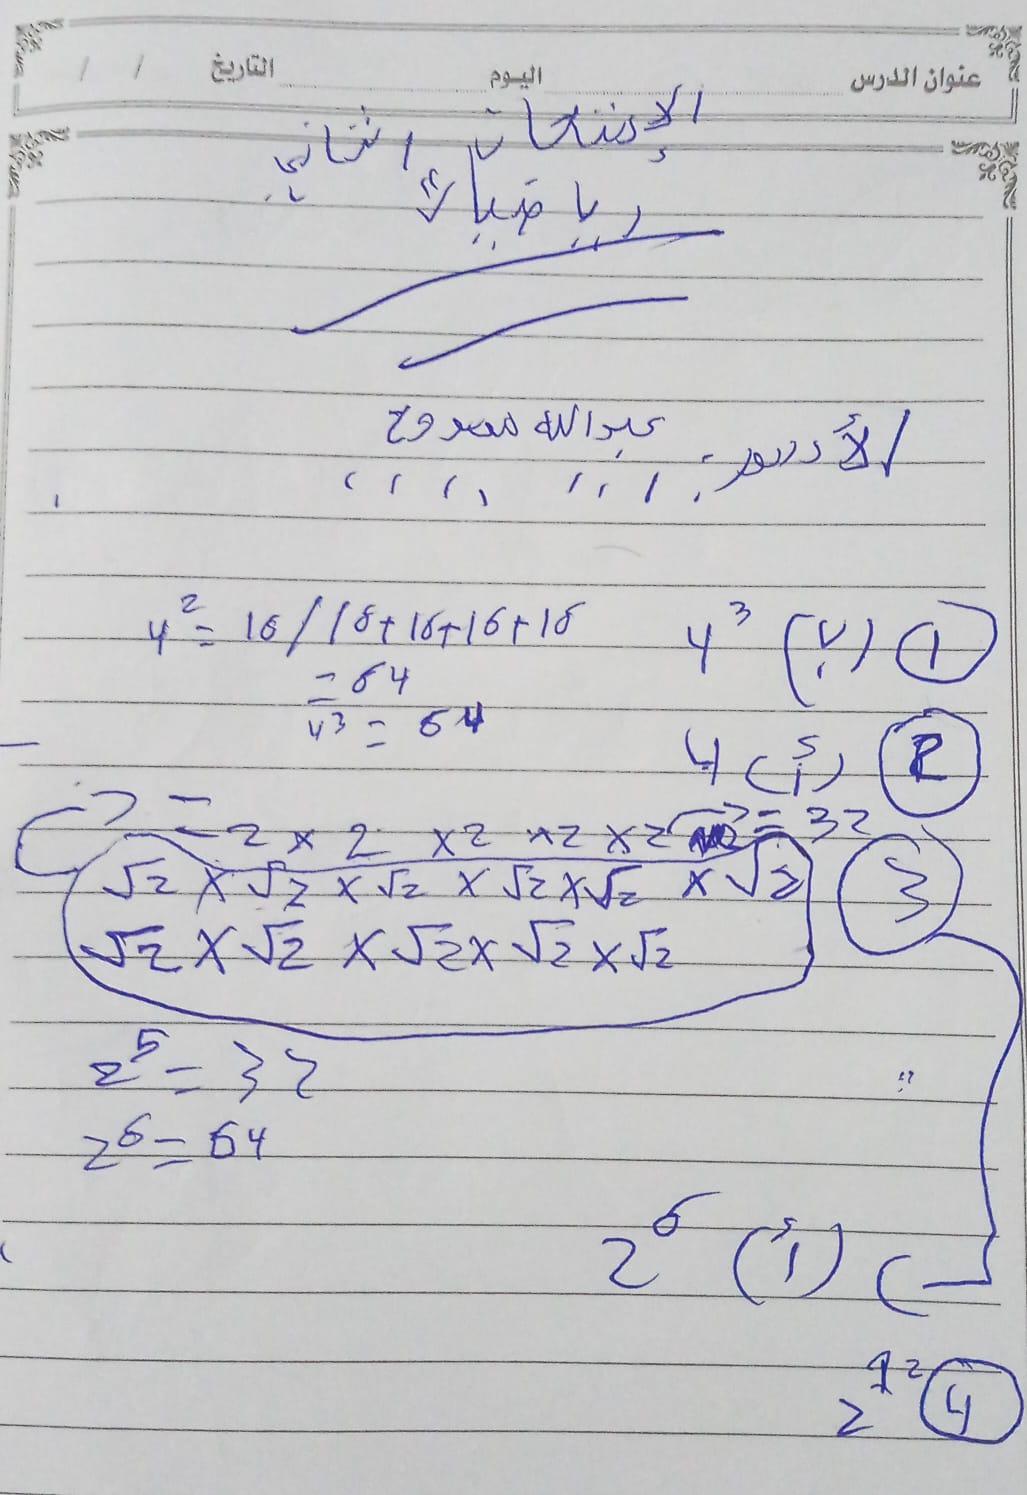 عنوان الدرس اليوم التاريخ / /
الإمتحان الثاني
رياضيات
عبدالله ممدوح
① (ب) 4³ 4² = 16 / 16+16+16+16
= 64
4³ = 64
② (أ) 4
= 2 × 2 × 2 × 2 × 2 = 32
③ √2 × √2 × √2 × √2 × √2 × √2
√2 × √2 × √2 × √2 × √2
2⁵ = 32
2⁶ = 64
(أ) 2⁶
④ 2¹²